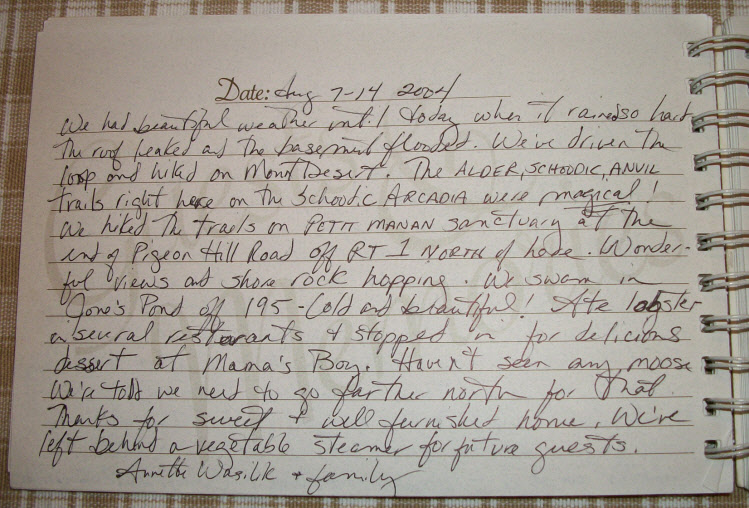 Date: Aug 7-14 2004
We had beautiful weather until today when it rained so hard
the roof leaked and the basement flooded. We've driven the
loop and hiked on Mount Desert. The ALDER, SCHOODIC, ANVIL
trails right here on the Schoodic ARCADIA were magical!
We hiked the trails on PETIT MANAN sanctuary at the
end of Pigeon Hill Road off RT 1 NORTH of here. Wonder-
ful views and shore rock hopping. We swam in
Jone's Pond off 195 - Cold and beautiful! Ate lobster
in several restaurants & stopped in for delicious
dessert at Mama's Boy. Haven't seen any moose
We're told we need to go farther north for that.
Thanks for sweet & well furnished home. We've
left behind a vegetable steamer for future guests.
Annette Wasilik & family